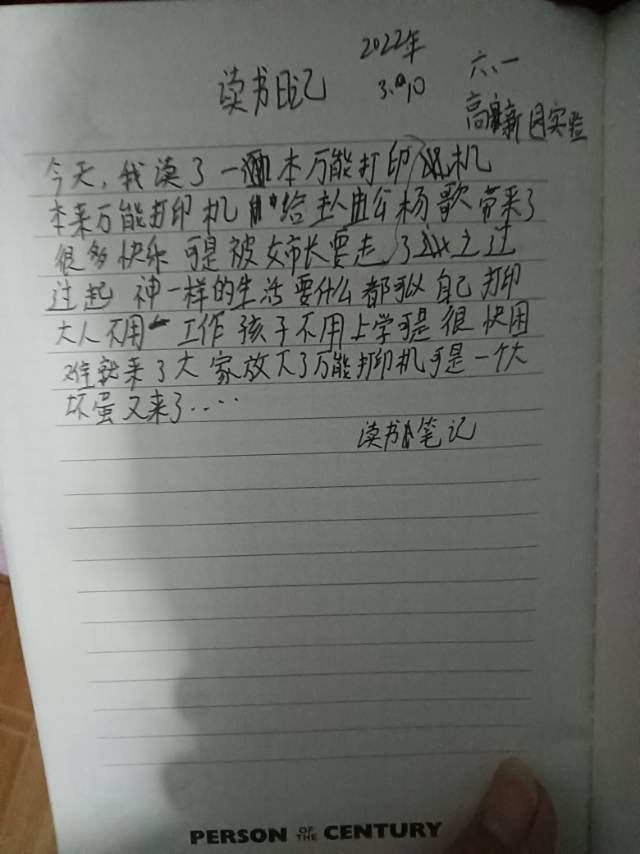 读书日记
2022年
3.10
六、一
高新园实验
今天,我读了一本万能打印机
本来万能打印机给主人公杨歌带来了
很多快乐 可是被女市长要走了 之过
过起 神一样的生活 要什么都可以自己打印
大人不用工作 孩子不用上学可是很快困
难就来了大家放下了万能打印机可是一个大
坏蛋又来了....
读书笔记
PERSON OF THE CENTURY